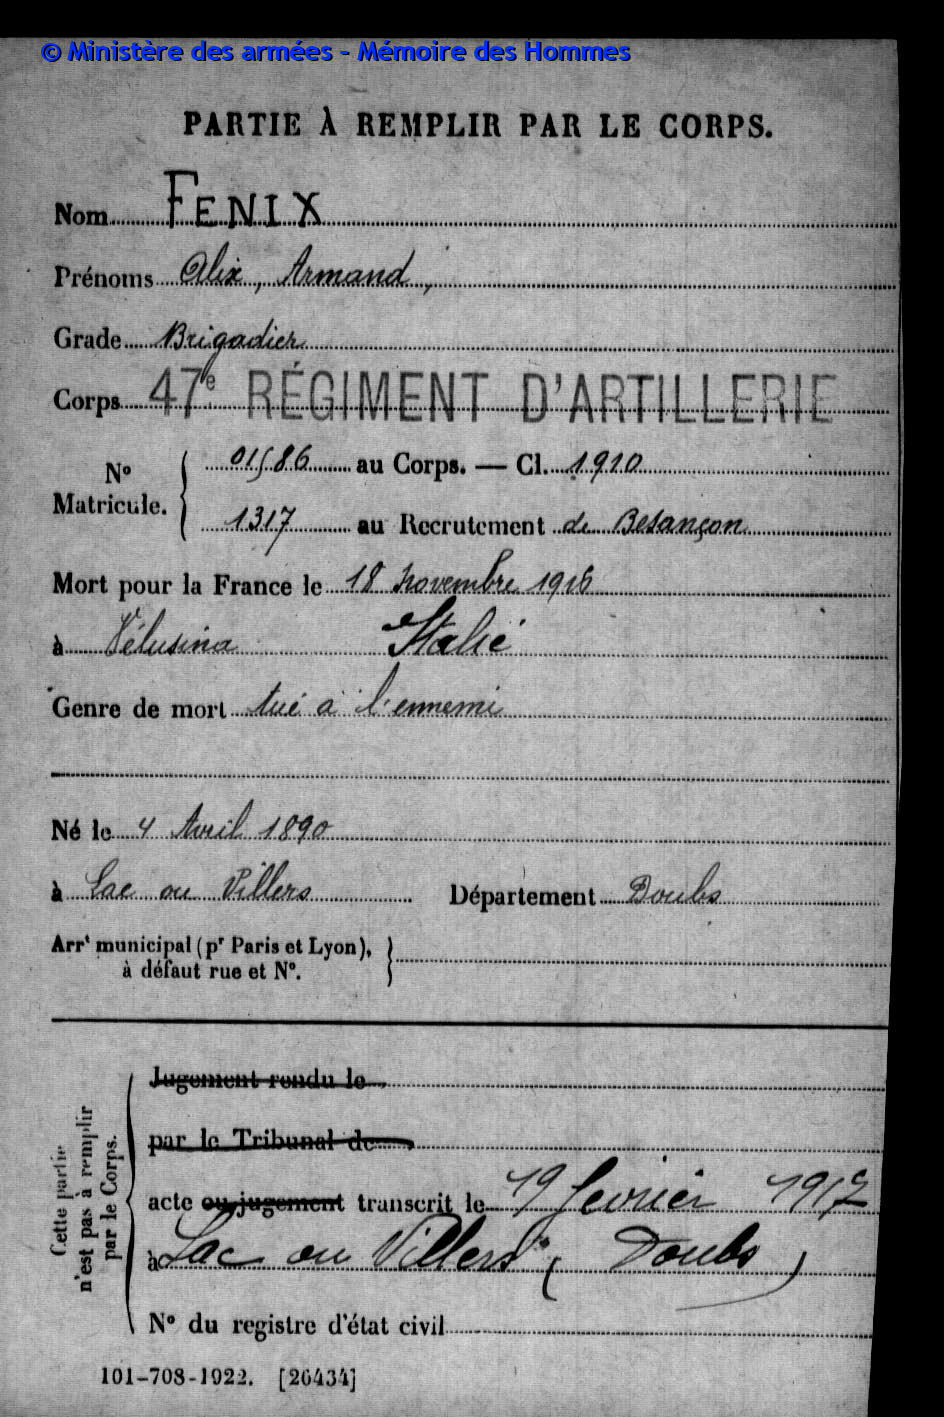 © Ministère des armées - Mémoire des Hommes
PARTIE À REMPLIR PAR LE CORPS.
Nom FENIX
Prénoms Alix, Armand,
Grade Brigadier
Corps 47e RÉGIMENT D'ARTILLERIE
No Matricule. { 01586 au Corps. — Cl. 1910
1317 au Recrutement de Besançon
Mort pour la France le 18 novembre 1916
à Vélusina Italie
Genre de mort tué à l'ennemi
Né le 4 Avril 1890
à Lac ou Villers Département Doubs
Arrt municipal (pr Paris et Lyon),
à défaut rue et No.
Cette partie
n'est pas à remplir
par le Corps.
Jugement rendu le
par le Tribunal de
acte ou jugement transcrit le 19 février 1917
à Lac ou Villers (Doubs)
No du registre d'état civil
101-708-1922. [26434]